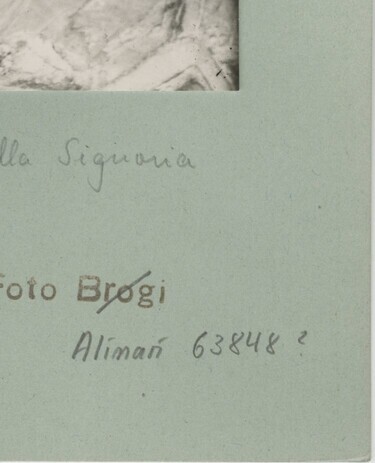 lla Signoria
Foto Brogi
Alinari 63848 ?